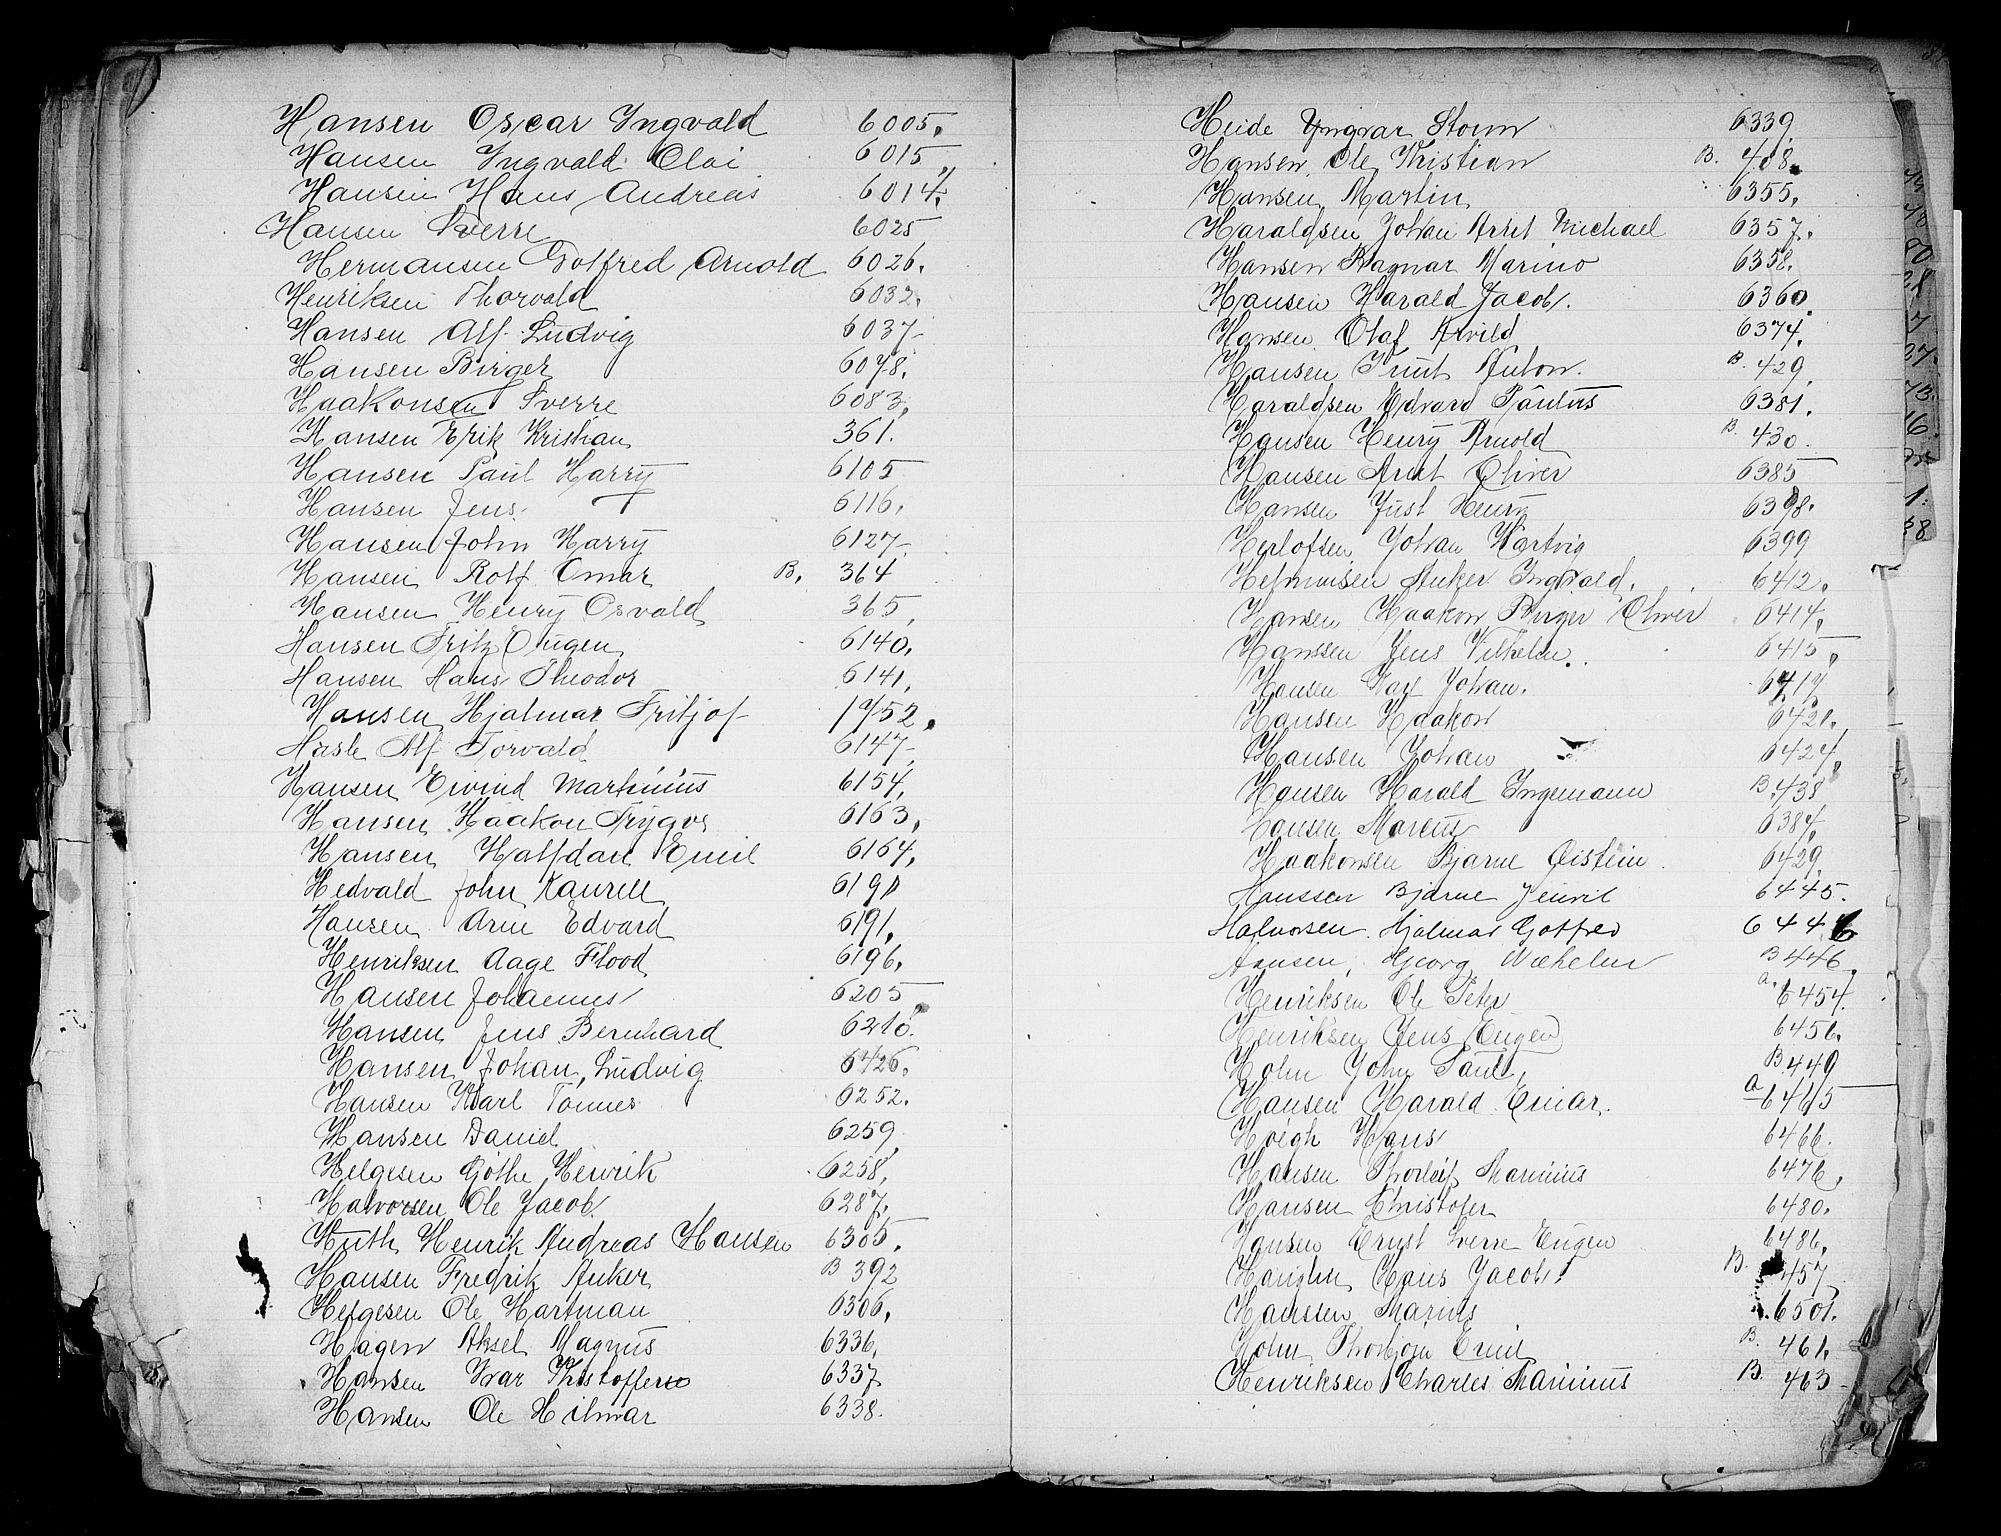 Hansen Oscar Ingvald 6005.
Hansen Ingvald Olai 6015
Hansen Hans Andreas 6014.
Hansen Sverre 6025
Hermansen Gotfred Arnold 6026.
Henriksen Thorvald 6032.
Hansen Alf Ludvig 6037
Hansen Birger 6078.
Haakonsen Sverre 6083.
Hansen Erik Kristian 361.
Hansen Paul Harry 6105
Hansen Jens. 6116.
Hansen John Harry 6127
Hansen Rolf Omar B. 364
Hansen Henry Osvald 365
Hansen Fritz Eugen 6140.
Hansen Hans Theodor 6141.
Hansen Hjalmar Fritjof 1752.
Hasle Alf Torvald 6147
Hansen Eivind Martinius 6154.
Hansen Haakon Trygve 6163.
Hansen Halfdan Emil 6164.
Hedvald John Kaurell 6191
Hansen Arne Edvard 6191.
Henriksen Aage Flood 6196.
Hansen Johannes 6205
Hansen Jens Bernhard 6210.
Hansen Johan Ludvig 6426.
Hansen Karl Tonnes 6252.
Hansen Daniel 6259
Helgesen Göthe Henrik 6258.
Halvorsen Ole Jacob 6287.
Huth Henrik Andreas Hansen 6305.
Hansen Fredrik Anker B 392
Helgesen Ole Hartman 6306.
Hagen Aksel Magnus 6336.
Hansen Ivar Kristoffer 6337
Hansen Ole Hilmar 6338.
Heide Yngvar Storm 6339.
Hansen Ole Kristian B. 408.
Hansen Martin 6355.
Haraldsen Johan Arnt Michael 6357.
Hansen Ragnar Marino 6358.
Hansen Harald Jacob. 6360
Hansen Olaf Arvild 6374.
Hansen Anton. B. 429
Haraldsen Edvard Paulus 6381.
Hansen Henry Arnold B. 430.
Hansen Arnt Oliver 6385
Hansen Just Henry 6398.
Herlofsen Johan Hartvig 6399
Helmuisen Anker Ingvald. 6412.
Hansen Haakon Birger Oliver 6414.
Hanssen Jens Vilhelm. 6415.
Hansen Johan. 6417
Hansen Haakon 6421.
Hansen Johan 6424
Hansen Harald Ingemann B. 438
Hansen Marcus 6384.
Haakonsen Bjarne Øistein. 6429
Hanssen Bjarne 6445.
Halvorsen. Hjalmar Gotfred 6446
Hansen, Georg Wilhelm B 446
Henriksen Ole Peter a. 6454.
Henriksen Jens Eugen 6456.
Holm John Paul B. 449
Hansen Harald Einar. a 6465
Høegh Hans 6466.
Hansen Thorleif Marinius 6476.
Hansen Christofer 6480.
Hansen Ernst Sverre Eugen 6486.
Hans Jacob B. 457
Hanssen Marius 6501.
Holm Thorbjørn Emil B. 461.
Henriksen Charles Marinius B. 463